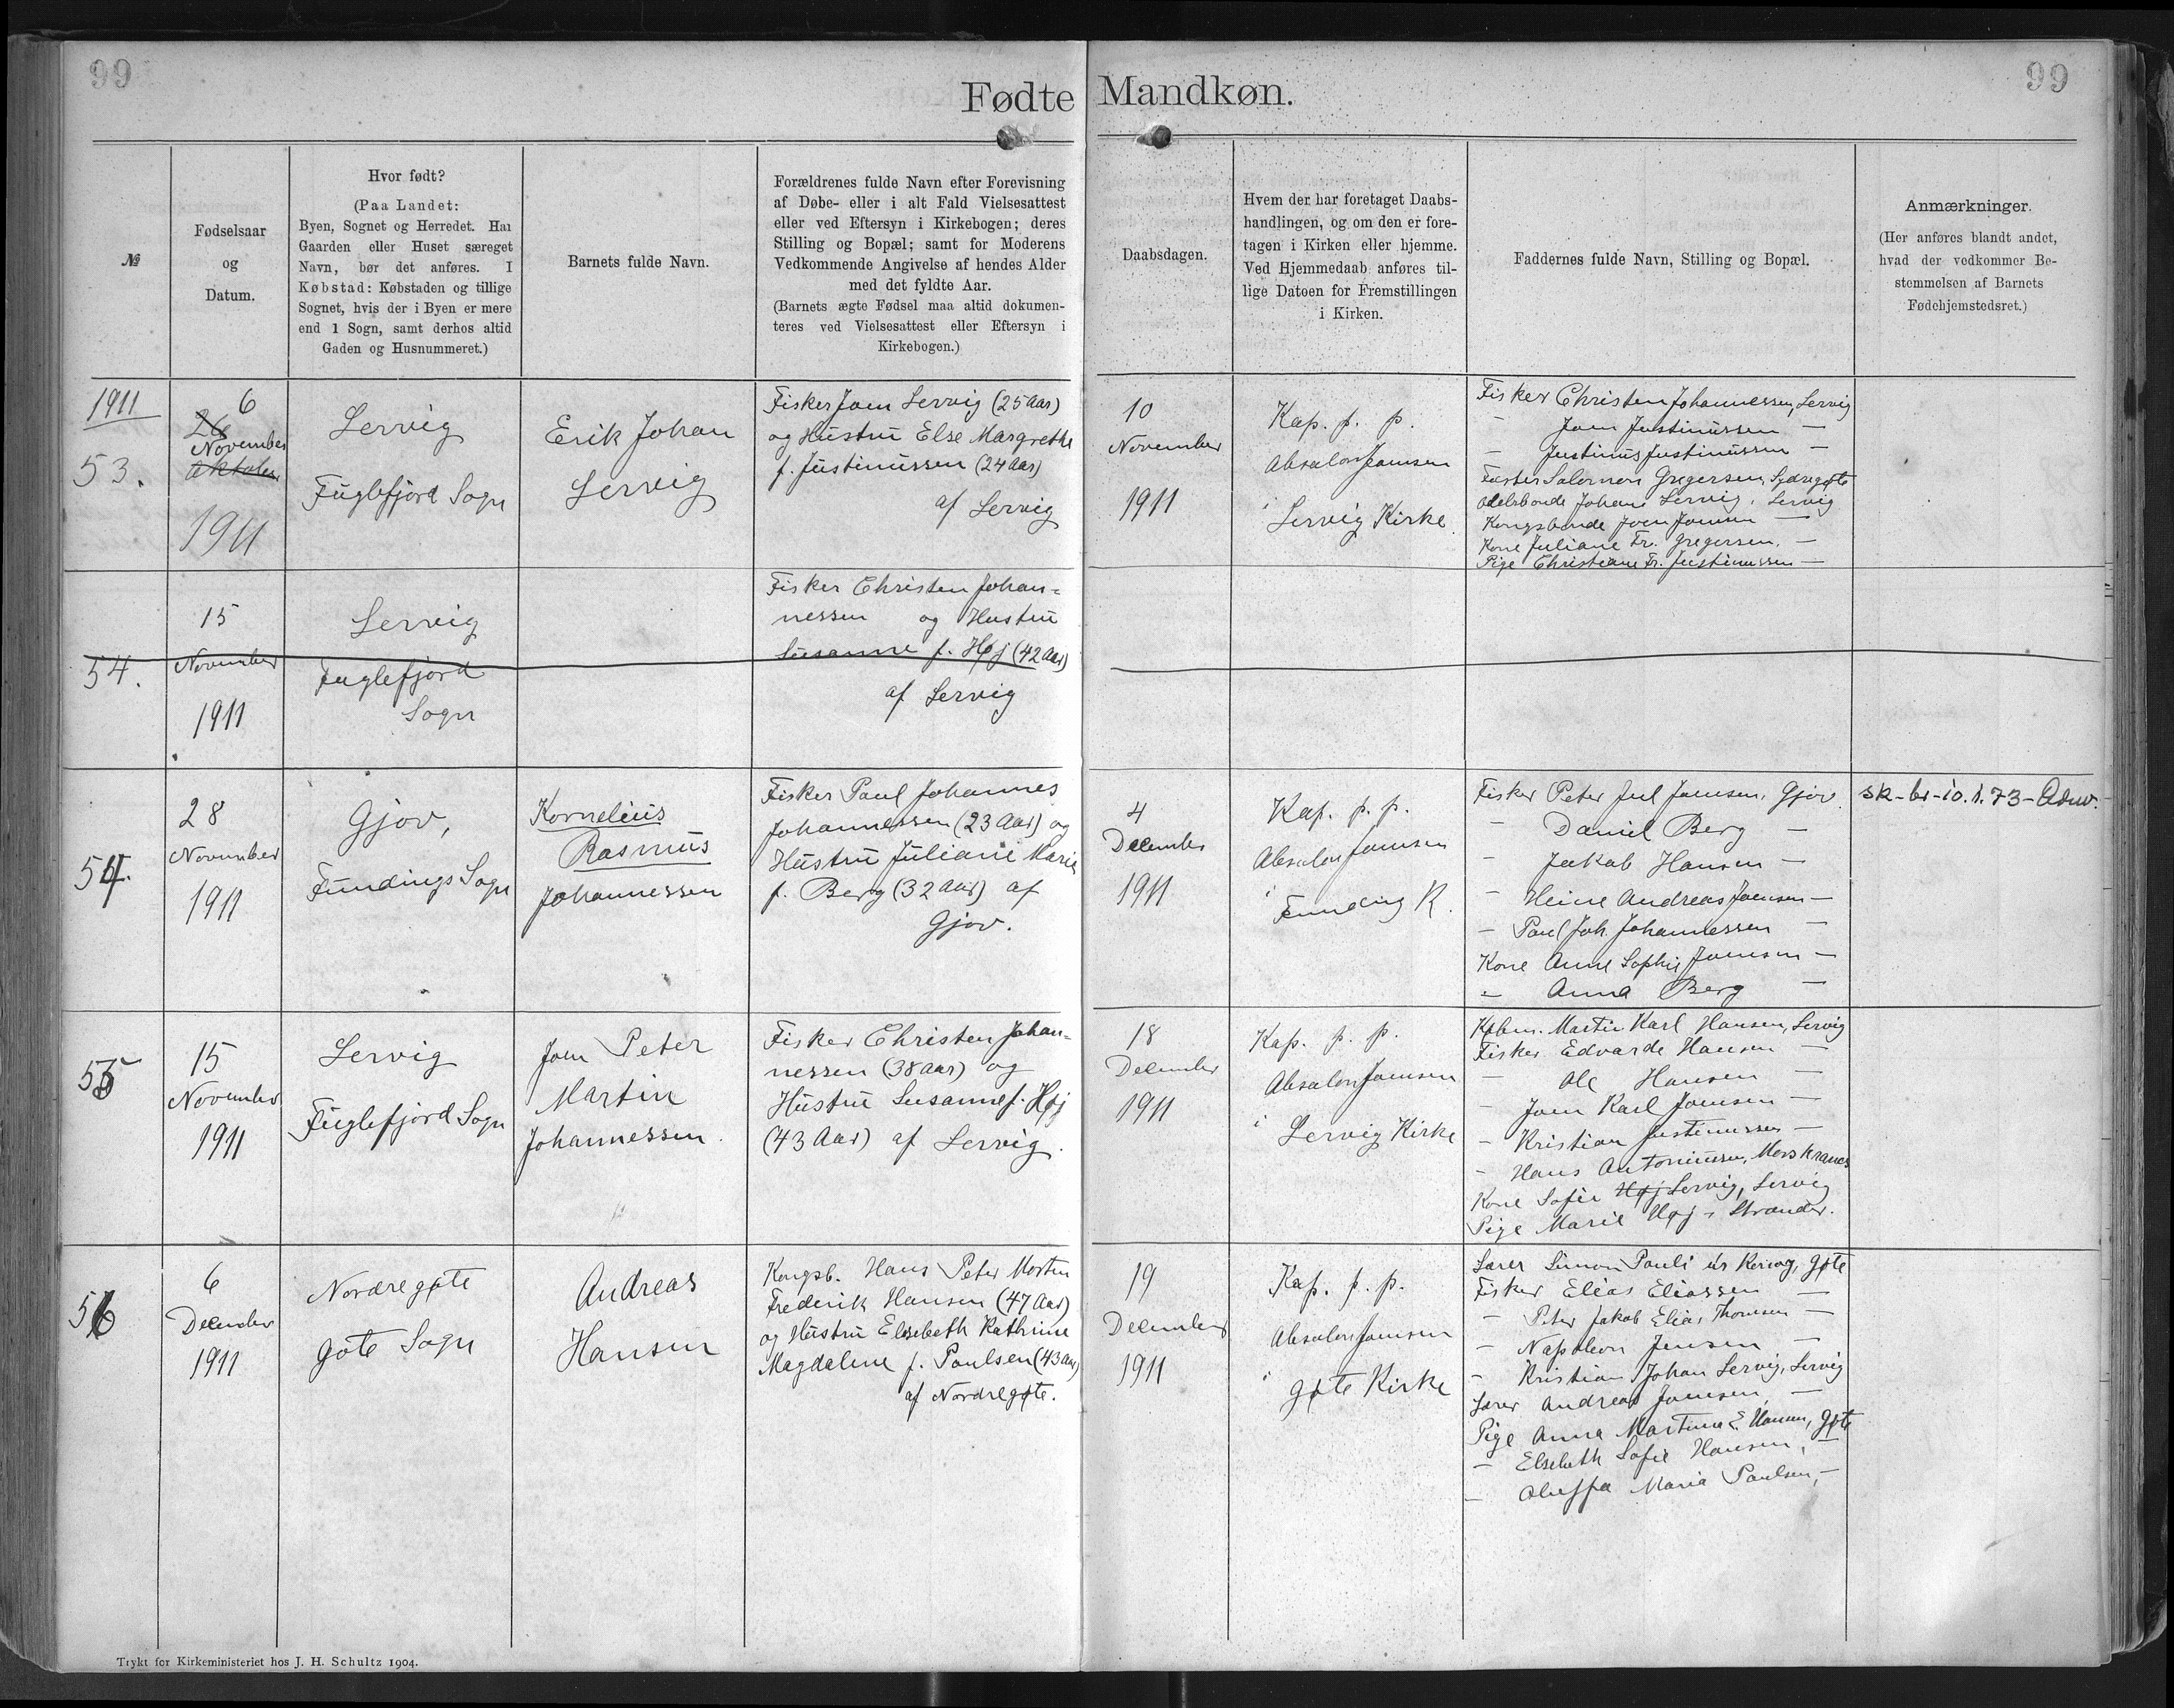 99
99
Fødte Mandkøn.
№
Fødselsaar
og
Datum.
Hvor født?
(Paa Landet:
Byen, Sognet og Herredet. Har
Gaarden eller Huset særeget
Navn, bør det anføres. I
Købstad: Købstaden og tillige
Sognet, hvis der i Byen er mere
end 1 Sogn, samt derhos altid
Gaden og Husnummeret.)
Barnets fulde Navn.
Forældrenes fulde Navn efter Forevisning
af Døbe- eller i alt Fald Vielsesattest
eller ved Eftersyn i Kirkebogen; deres
Stilling og Bopæl; samt for Moderens
Vedkommende Angivelse af hendes Alder
med det fyldte Aar.
(Barnets ægte Fødsel maa altid dokumen-
teres ved Vielsesattest eller Eftersyn i
Kirkebogen.)
Daabsdagen.
Hvem der har foretaget Daabs-
handlingen, og om den er fore-
tagen i Kirken eller hjemme.
Ved Hjemmedaab anføres til-
lige Datoen for Fremstillingen
i Kirken.
Faddernes fulde Navn, Stilling og Bopæl.
Anmærkninger.
(Her anføres blandt andet,
hvad der vedkommer Be-
stemmelsen af Barnets
Fødehjemstedsret.)
1911
53.
6
26
November
Oktober
1911
Lervig
Fuglefjord Sogn
Erik Johan
Lervig
Fisker Joen Lervig (25 Aar)
og Hustru Else Margrethe
f. Justinussen (24 Aar)
af Lervig
10
November
1911
Kap. p. p.
Absalon Joensen
i
Lervig Kirke
Fisker Christen Johannessen, Lervig
- Joen Justinussen -
- Justinus Justinussen -
Fæster Salomon Gregersen, Sydregøte
Odelsbonde Johan Lervig, Lervig
Kongsbonde Joen Joensen -
Kone Juliane Fr. Gregersen. -
Pige Christiane Fr. Justinussen -
54.
15
November
1911
Lervig
Fuglefjord
Sogn
Fisker Christen Johan=
nessen og Hustru
Susanne f. Høj (42 Aar)
af Lervig
54.
28
November
1911
Gjov,
Fundings Sogn
Kornelius
Rasmus
Johannessen
Fisker Paul Johannes
Johannessen (23 Aar) og
Hustru Juliane Marie
f. Berg (32 Aar) af
Gjov.
4
December
1911
Kap. p. p.
Absalon Joensen
i
Funding K.
Fisker Peter Jul Joensen, Gjov.
- Daniel Berg -
- Jakob Hansen -
- Heine Andreas Joensen -
- Paul Joh. Johannessen -
Kone Anne Sophie Joensen -
- Anna Berg -
sk-br-10.1.73-
55
15
November
1911
Lervig
Fuglefjord Sogn
Joen Peter
Martin
Johannessen.
Fisker Christen Johan-
nessen (38 Aar) og
Hustru Susanne f. Høj
(43 Aar) af Lervig.
18
December
1911
Kap. p. p.
Absalon Joensen
i
Lervig Kirke
Købm. Martin Karl Hansen, Lervig
Fisker Edvard Hansen -
- Ole Hansen -
- Joen Karl Joensen -
- Kristian Justinussen -
- Hans Antoniussen, Morskranes
Kone Sofie Høj Lervig, Lervig
Pige Marie Høj, Strander.
56
6
December
1911
Nordregøte
Gøte Sogn
Andreas
Hansen
Kongsb. Hans Peter Morten
Frederik Hansen (47 Aar)
og Hustru Elsebeth Kathrine
Magdalene f. Poulsen (43 Aar)
af Nordregøte.
19
December
1911
Kap. p. p.
Absalon Joensen
i
Gøte Kirke
Lærer Simon Pauli úr Konoy, Gøte
Fisker Elias Eliassen -
- Peter Jakob Elias Thomsen -
- Napoleon Jensen -
- Kristian Johan Lervig, Lervig
Lærer Andreas Joensen, -
Pige Anna Martina E. Hansen, Gøte
- Elsebeth Sofie Hansen, -
- Maria Poulsen, -
Trykt for Kirkeministeriet hos J. H. Schultz 1904.